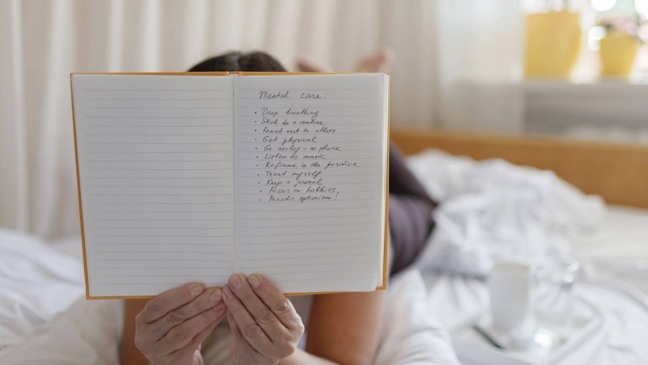 Mental care:
• Deep breathing
• Stick to a routine
• Reach out to others
• Get physical
• Go early - no phone
• Listen to music
- Reframe in the positive
• Treat myself
• Keep a journal
• Focus on hobbies,
• Practic optimism!